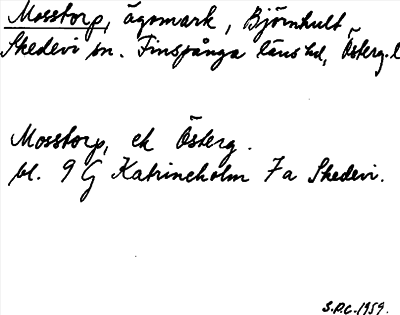 Mosstorp, ägomark, Björnhult,
Skedevi sn. Finspånga läns hd, Österg. l
Mosstorp, ek Österg.
bl. 9 G Katrineholm 7a Skedevi.
S.P.C. 1959.